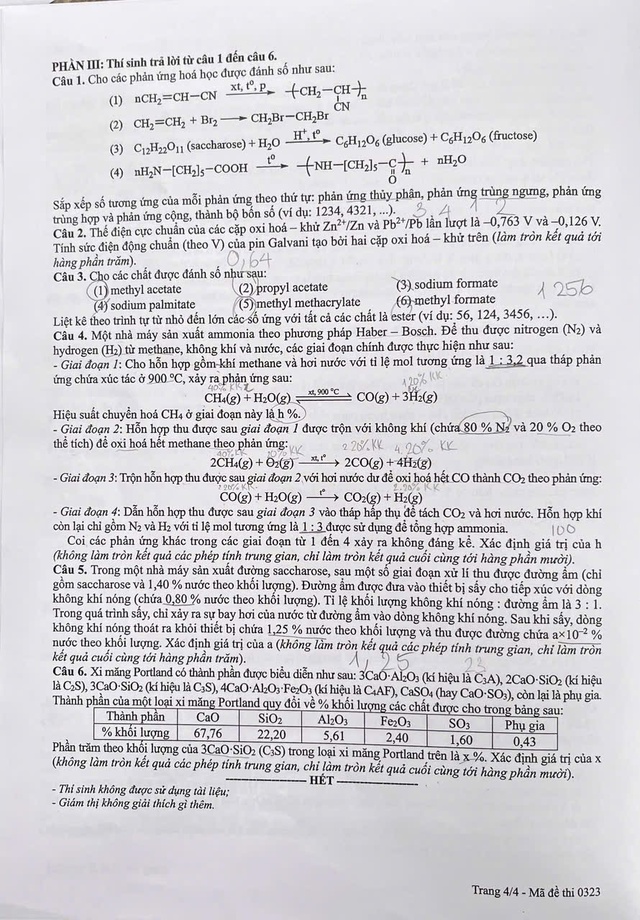 PHẦN III: Thí sinh trả lời từ câu 1 đến câu 6.
Câu 1. Cho các phản ứng hoá học được đánh số như sau:
(1) nCH₂=CH–CN xt, t°, p ⟶ –(CH₂–CH)–n
CN
(2) CH₂=CH₂ + Br₂ ⟶ CH₂Br–CH₂Br
(3) C₁₂H₂₂O₁₁ (saccharose) + H₂O H⁺, t° ⟶ C₆H₁₂O₆ (glucose) + C₆H₁₂O₆ (fructose)
(4) nH₂N–[CH₂]₅–COOH t° ⟶ –(NH–[CH₂]₅–C)–n + nH₂O
O
Sắp xếp số tương ứng của mỗi phản ứng theo thứ tự: phản ứng thủy phân, phản ứng trùng ngưng, phản ứng
trùng hợp và phản ứng cộng, thành bộ bốn số (ví dụ: 1234, 4321, ...). 3 4 1 2
Câu 2. Thế điện cực chuẩn của các cặp oxi hoá – khử Zn²⁺/Zn và Pb²⁺/Pb lần lượt là –0,763 V và –0,126 V.
Tính sức điện động chuẩn (theo V) của pin Galvani tạo bởi hai cặp oxi hoá – khử trên (làm tròn kết quả tới
hàng phần trăm). 0,64
Câu 3. Cho các chất được đánh số như sau:
(1) methyl acetate (2) propyl acetate (3) sodium formate
(4) sodium palmitate (5) methyl methacrylate (6) methyl formate 1256
Liệt kê theo trình tự từ nhỏ đến lớn các số ứng với tất cả các chất là ester (ví dụ: 56, 124, 3456, ...).
Câu 4. Một nhà máy sản xuất ammonia theo phương pháp Haber – Bosch. Để thu được nitrogen (N₂) và
hydrogen (H₂) từ methane, không khí và nước, các giai đoạn chính được thực hiện như sau:
- Giai đoạn 1: Cho hỗn hợp gồm khí methane và hơi nước với tỉ lệ mol tương ứng là 1 : 3,2 qua tháp phản
ứng chứa xúc tác ở 900 °C, xảy ra phản ứng sau:
CH₄(g) + H₂O(g) xt, 900 °C ⇌ CO(g) + 3H₂(g)
Hiệu suất chuyển hoá CH₄ ở giai đoạn này là h %.
- Giai đoạn 2: Hỗn hợp thu được sau giai đoạn 1 được trộn với không khí (chứa 80 % N₂ và 20 % O₂ theo
thể tích) để oxi hoá hết methane theo phản ứng:
2CH₄(g) + O₂(g) xt, t° ⟶ 2CO(g) + 4H₂(g)
- Giai đoạn 3: Trộn hỗn hợp thu được sau giai đoạn 2 với hơi nước dư để oxi hoá hết CO thành CO₂ theo phản ứng:
CO(g) + H₂O(g) t° ⟶ CO₂(g) + H₂(g)
- Giai đoạn 4: Dẫn hỗn hợp thu được sau giai đoạn 3 vào tháp hấp thụ để tách CO₂ và hơi nước. Hỗn hợp khí
còn lại chỉ gồm N₂ và H₂ với tỉ lệ mol tương ứng là 1 : 3 được sử dụng để tổng hợp ammonia. 100
Coi các phản ứng khác trong các giai đoạn từ 1 đến 4 xảy ra không đáng kể. Xác định giá trị của h
(không làm tròn kết quả các phép tính trung gian, chỉ làm tròn kết quả cuối cùng tới hàng phần mười).
Câu 5. Trong một nhà máy sản xuất đường saccharose, sau một số giai đoạn xử lí thu được đường ẩm (chỉ
gồm saccharose và 1,40 % nước theo khối lượng). Đường ẩm được đưa vào thiết bị sấy cho tiếp xúc với dòng
không khí nóng (chứa 0,80 % nước theo khối lượng). Tỉ lệ khối lượng không khí nóng : đường ẩm là 3 : 1.
Trong quá trình sấy, chỉ xảy ra sự bay hơi của nước từ đường ẩm vào dòng không khí nóng. Sau khi sấy, dòng
không khí nóng thoát ra khỏi thiết bị chứa 1,25 % nước theo khối lượng và thu được đường chứa a×10⁻² %
nước theo khối lượng. Xác định giá trị của a (không làm tròn kết quả các phép tính trung gian, chỉ làm tròn
kết quả cuối cùng tới hàng phần trăm). 1,25 23
Câu 6. Xi măng Portland có thành phần được biểu diễn như sau: 3CaO·Al₂O₃ (kí hiệu là C₃A), 2CaO·SiO₂ (kí hiệu
là C₂S), 3CaO·SiO₂ (kí hiệu là C₃S), 4CaO·Al₂O₃·Fe₂O₃ (kí hiệu là C₄AF), CaSO₄ (hay CaO·SO₃), còn lại là phụ gia.
Thành phần của một loại xi măng Portland quy đổi về % khối lượng các chất được cho trong bảng sau:
Thành phần CaO SiO₂ Al₂O₃ Fe₂O₃ SO₃ Phụ gia
% khối lượng 67,76 22,20 5,61 2,40 1,60 0,43
Phần trăm theo khối lượng của 3CaO·SiO₂ (C₃S) trong loại xi măng Portland trên là x %. Xác định giá trị của x
(không làm tròn kết quả các phép tính trung gian, chỉ làm tròn kết quả cuối cùng tới hàng phần mười).
HẾT
- Thí sinh không được sử dụng tài liệu;
- Giám thị không giải thích gì thêm.
Trang 4/4 - Mã đề thi 0323